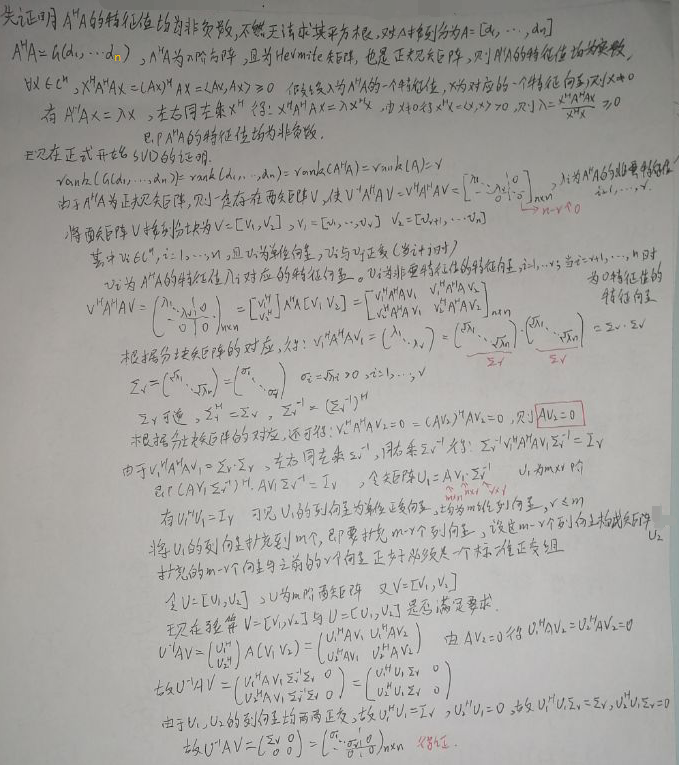 先证明AᴴA的特征值均为非负数,不然无法求其平方根,对A按列分为A=[α₁,…,αₙ]
AᴴA=G(α₁,…αₙ),AᴴA为n阶方阵,且为Hermite矩阵,也是正规矩阵,则AᴴA的特征值均为实数,
∀x∈Cⁿ, xᴴAᴴAx=(Ax)ᴴAx=<Ax,Ax>≥0 假设λ为AᴴA的一个特征值,x为对应的一个特征向量,则x≠0
有AᴴAx=λx,左右同左乘xᴴ得:xᴴAᴴAx=λxᴴx,由x≠0得xᴴx=<x,x>>0,则λ=xᴴAᴴAx/xᴴx≥0
即AᴴA的特征值均为非负数.
现在正式开始SVD的证明.
rank(G(α₁,…,αₙ))=rank(α₁,…,αₙ)=rank(AᴴA)=rank(A)=r
由于AᴴA为正规矩阵,则一定存在酉矩阵V,使V⁻¹AᴴAV=VᴴAᴴAV=[λ₁ ⋱ λᵣ 0; 0 0]ₙₓₙ,λᵢ为AᴴA的非零特征值 i=1,…,r.
→n-r个0
将酉矩阵V按列分块为V=[V₁,V₂],V₁=[v₁,…,vᵣ] V₂=[vᵣ₊₁,…vₙ]
其中vᵢ∈Cⁿ,i=1,…,n,且vᵢ为单位向量,vᵢ与vⱼ正交(当i≠j时)
vᵢ为AᴴA的特征值λᵢ对应的特征向量。vᵢ为非零特征值的特征向量,i=1,…,r;当i=r+1,…,n时为0特征值的特征向量
VᴴAᴴAV=(λ₁ ⋱ λᵣ 0; 0 0)ₙₓₙ=[V₁ᴴ; V₂ᴴ]AᴴA[V₁ V₂]=[V₁ᴴAᴴAV₁ V₁ᴴAᴴAV₂; V₂ᴴAᴴAV₁ V₂ᴴAᴴAV₂]ₙₓₙ
根据分块矩阵的对应,得:V₁ᴴAᴴAV₁=(λ₁ ⋱ λᵣ)=(√λ₁ ⋱ √λₙ)·(√λ₁ ⋱ √λₙ)=Σᵣ·Σᵣ
Σᵣ Σᵣ
Σᵣ=(√λ₁ ⋱ √λᵣ)=(σ₁ ⋱ σᵣ) σᵢ=√λᵢ>0,i=1,…,r
Σᵣ可逆,Σᵣᴴ=Σᵣ,Σᵣ⁻¹=(Σᵣ⁻¹)ᴴ
根据分块矩阵的对应,还可得:V₂ᴴAᴴAV₂=0=(AV₂)ᴴAV₂=0,则AV₂=0
由于V₁ᴴAᴴAV₁=Σᵣ·Σᵣ,左右同左乘Σᵣ⁻¹,同右乘Σᵣ⁻¹得:Σᵣ⁻¹V₁ᴴAᴴAV₁Σᵣ⁻¹=Iᵣ
即(AV₁Σᵣ⁻¹)ᴴ·AV₁Σᵣ⁻¹=Iᵣ,令矩阵U₁=AV₁·Σᵣ⁻¹ U₁为m×r阶
m×n n×r r×r
有U₁ᴴU₁=Iᵣ 可见U₁的列向量为单位正交向量,均为m维列向量,r≤m
将U₁的列向量扩充到m个,即要扩充m-r个列向量,设这m-r个列向量构成矩阵U₂
扩充的m-r个向量与之前的r个向量正好必须是一个标准正交组
令U=[U₁,U₂],U为m阶酉矩阵 又V=[V₁,V₂]
现在验算V=[V₁,V₂]与U=[U₁,U₂]是否满足要求.
U⁻¹AV=(U₁ᴴ; U₂ᴴ)A(V₁ V₂)=(U₁ᴴAV₁ U₁ᴴAV₂; U₂ᴴAV₁ U₂ᴴAV₂) 由AV₂=0得U₁ᴴAV₂=U₂ᴴAV₂=0
故U⁻¹AV=(U₁ᴴAV₁Σᵣ⁻¹Σᵣ 0; U₂ᴴAV₁Σᵣ⁻¹Σᵣ 0)=(U₁ᴴU₁Σᵣ 0; U₂ᴴU₁Σᵣ 0)
由于U₁,U₂的列向量均两两正交,故U₁ᴴU₁=Iᵣ,U₂ᴴU₁=0,故U₁ᴴU₁Σᵣ=Σᵣ,U₂ᴴU₁Σᵣ=0
故U⁻¹AV=(Σᵣ 0; 0 0)=(σ₁ ⋱ σᵣ 0; 0 0)ₙₓₙ 得证.